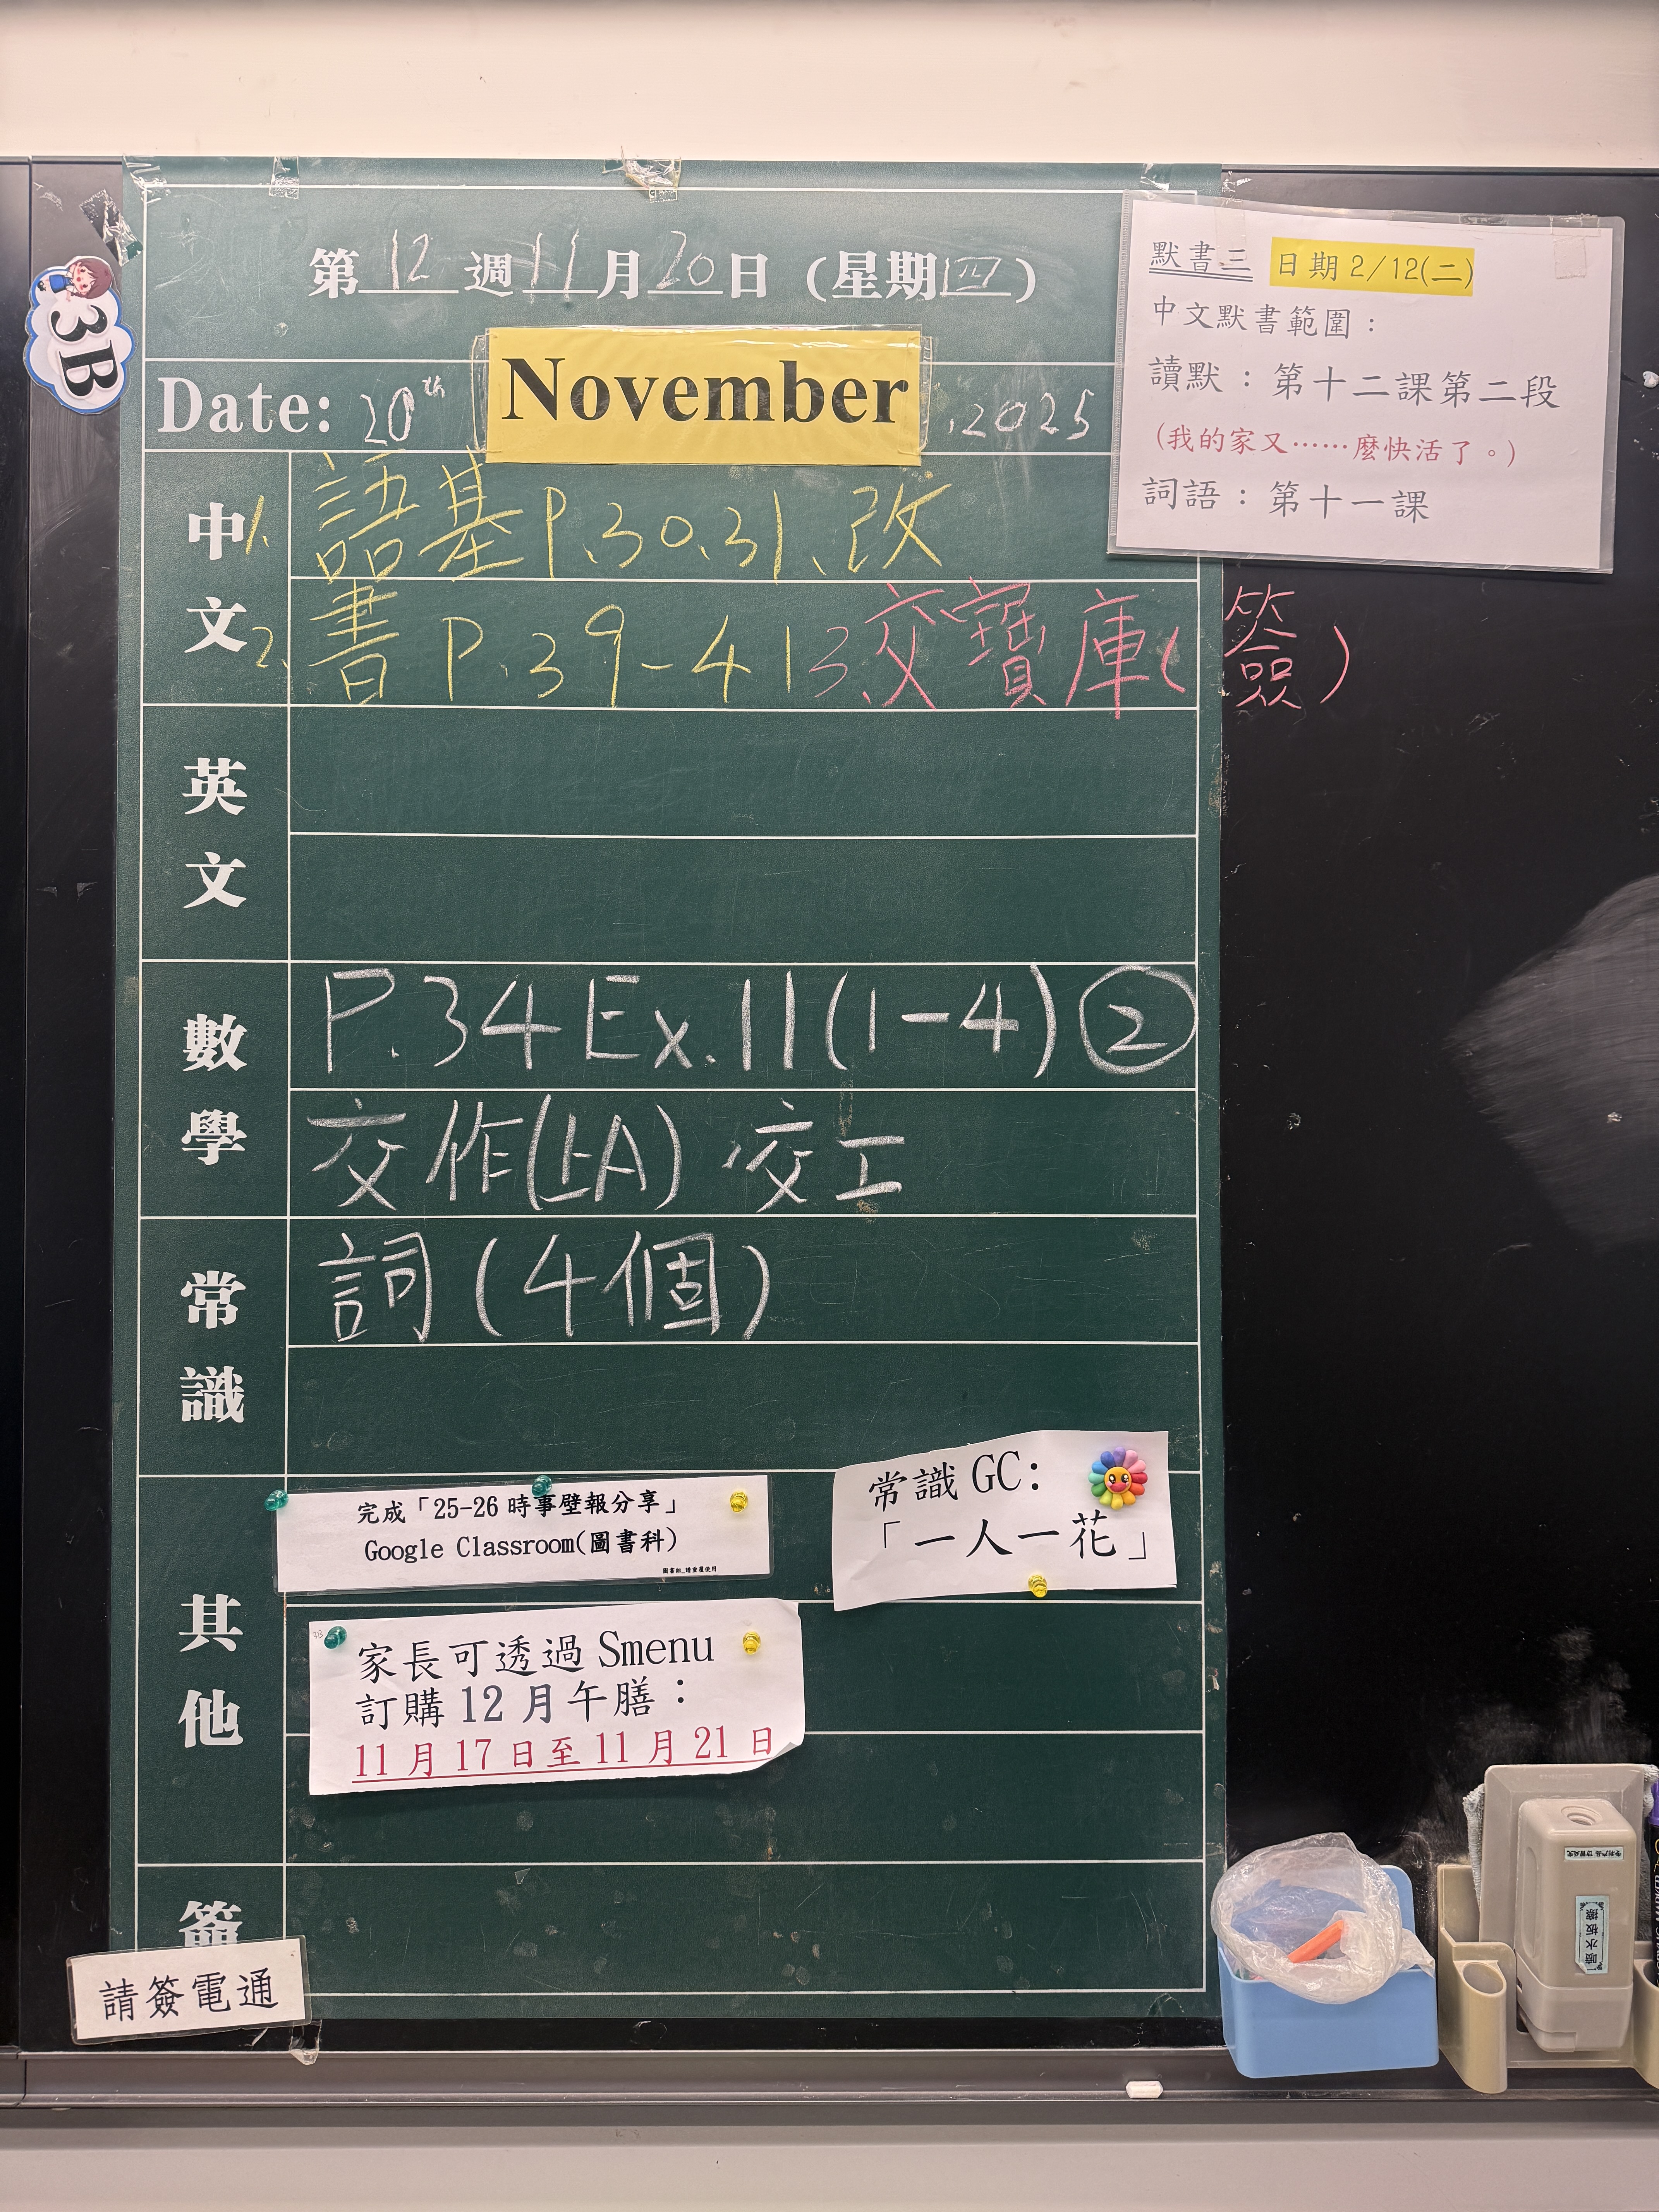 3B
第 12 週 11 月 20 日 (星期四)
Date: 20th November, 2025
默書三 日期 2/12(二)
中文默書範圍：
讀默：第十二課第二段
(我的家又……麼快活了。)
詞語：第十一課
中文
1. 語基 P.30.31、改
2. 書 P.39-41 3.交寶庫(簽)
英文
數學
P.34 Ex.11(1-4) ②
交作(上A) 交工
常識
詞(4個)
其他
完成「25-26 時事壁報分享」
Google Classroom(圖書科)
常識 GC:
「一人一花」
家長可透過 Smenu
訂購 12 月午膳：
11 月 17 日至 11 月 21 日
請簽電通
噴水板擦